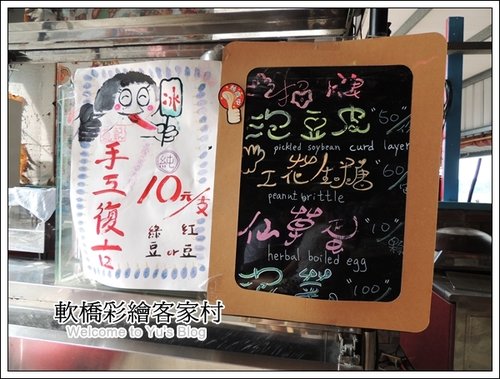 冰
純
手工復古
10元/支
綠豆 or 紅豆
招牌
泡豆皮 "50"
pickled soybean curd layer
工花生糖 "60"
peanut brittle
仙草蛋 "10"
herbal boiled egg
"100"
軟橋彩繪客家村
Welcome to Yu's Blog